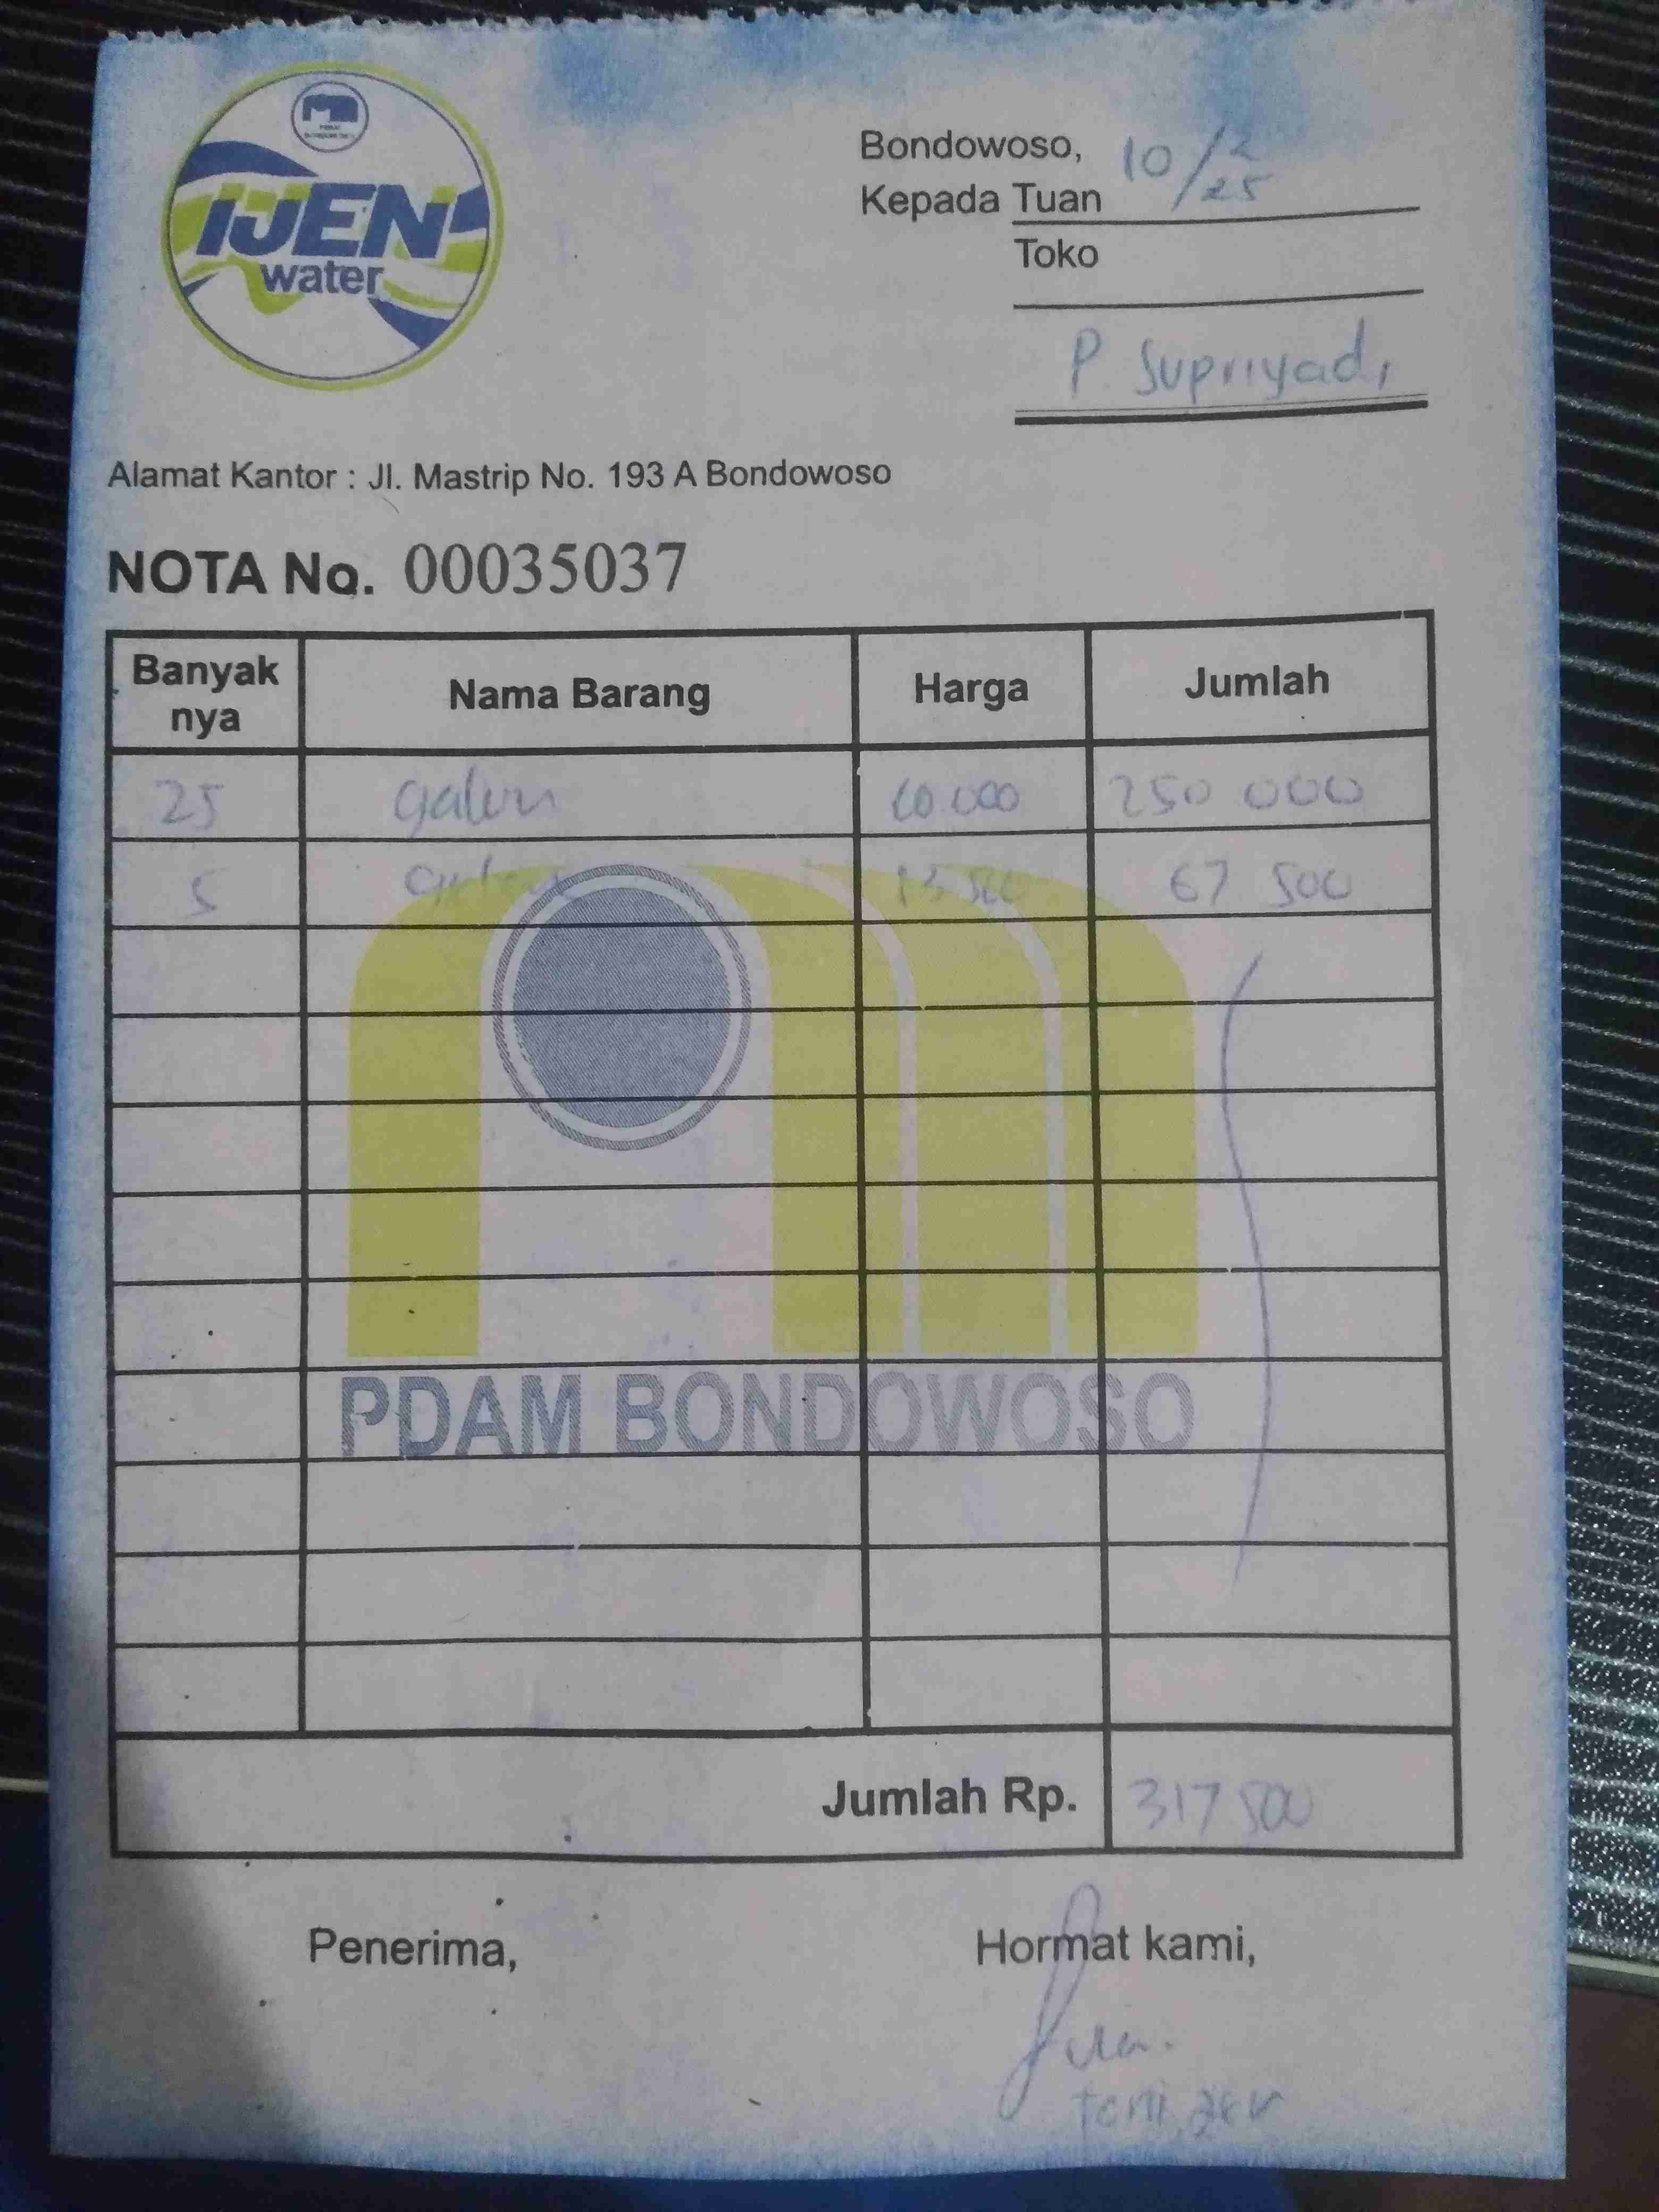 IJEN
water
Bondowoso, 10/2/25
Kepada Tuan
Toko
P. Supriyadi
Alamat Kantor : Jl. Mastrip No. 193 A Bondowoso
NOTA No. 00035037
Banyak nya Nama Barang Harga Jumlah
25 galon 10.000 250 000
5 galon 13 500 67 500
PDAM BONDOWOSO
Jumlah Rp. 317 500
Penerima, Hormat kami,